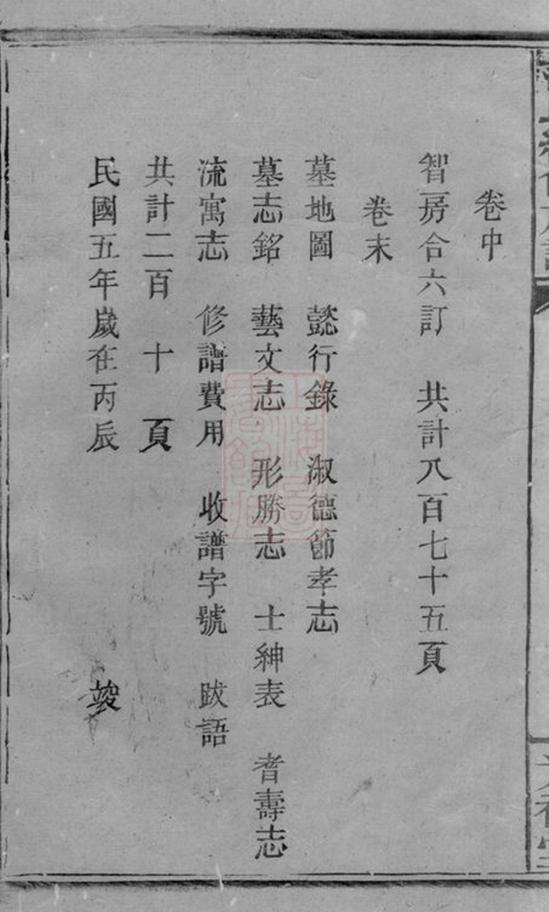 卷中
智房合六訂　共計八百七十五頁
卷末
墓地圖　懿行錄　淑德節孝志
墓志銘　藝文志　形勝志　士紳表　耆壽志
流寓志　修譜費用　收譜字號　跋語
共計二百　十　頁
民國五年歲在丙辰　　竣